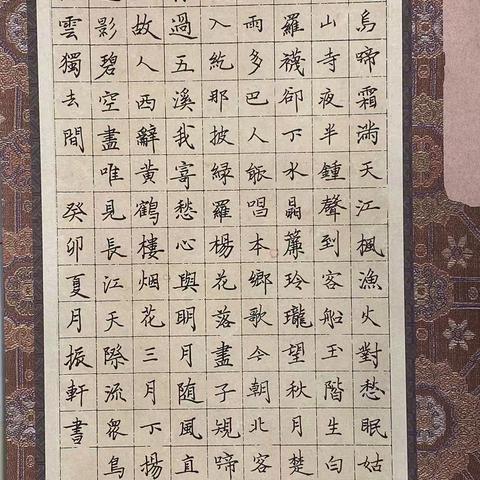 烏啼霜滿天江楓漁火對愁眠姑
山寺夜半鍾聲到客船玉階生白
羅襪卻下水晶簾玲瓏望秋月楚
雨多巴人能唱本鄉歌今朝北客
入紇那披綠羅楊花落盡子規啼
過五溪我寄愁心與明月随風直
故人西辭黄鶴樓烟花三月下揚
影碧空盡唯見長江天際流衆鳥
雲獨去間
癸卯夏月振軒書